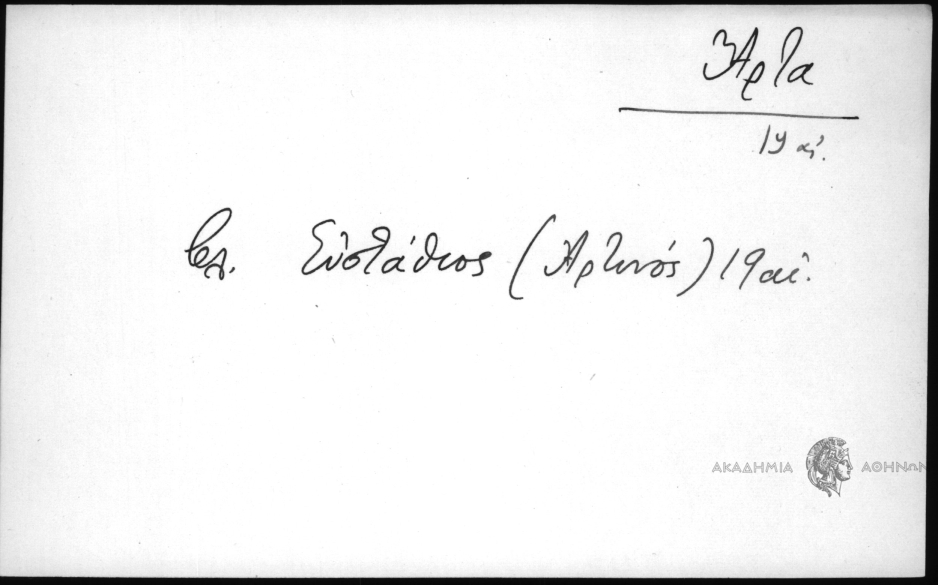 Ἄρτα
19 αἰ.
βλ. Εὐστάθιος (Ἀρτινός) 19 αἰ.
ΑΚΑΔΗΜΙΑ ΑΘΗΝΩΝ